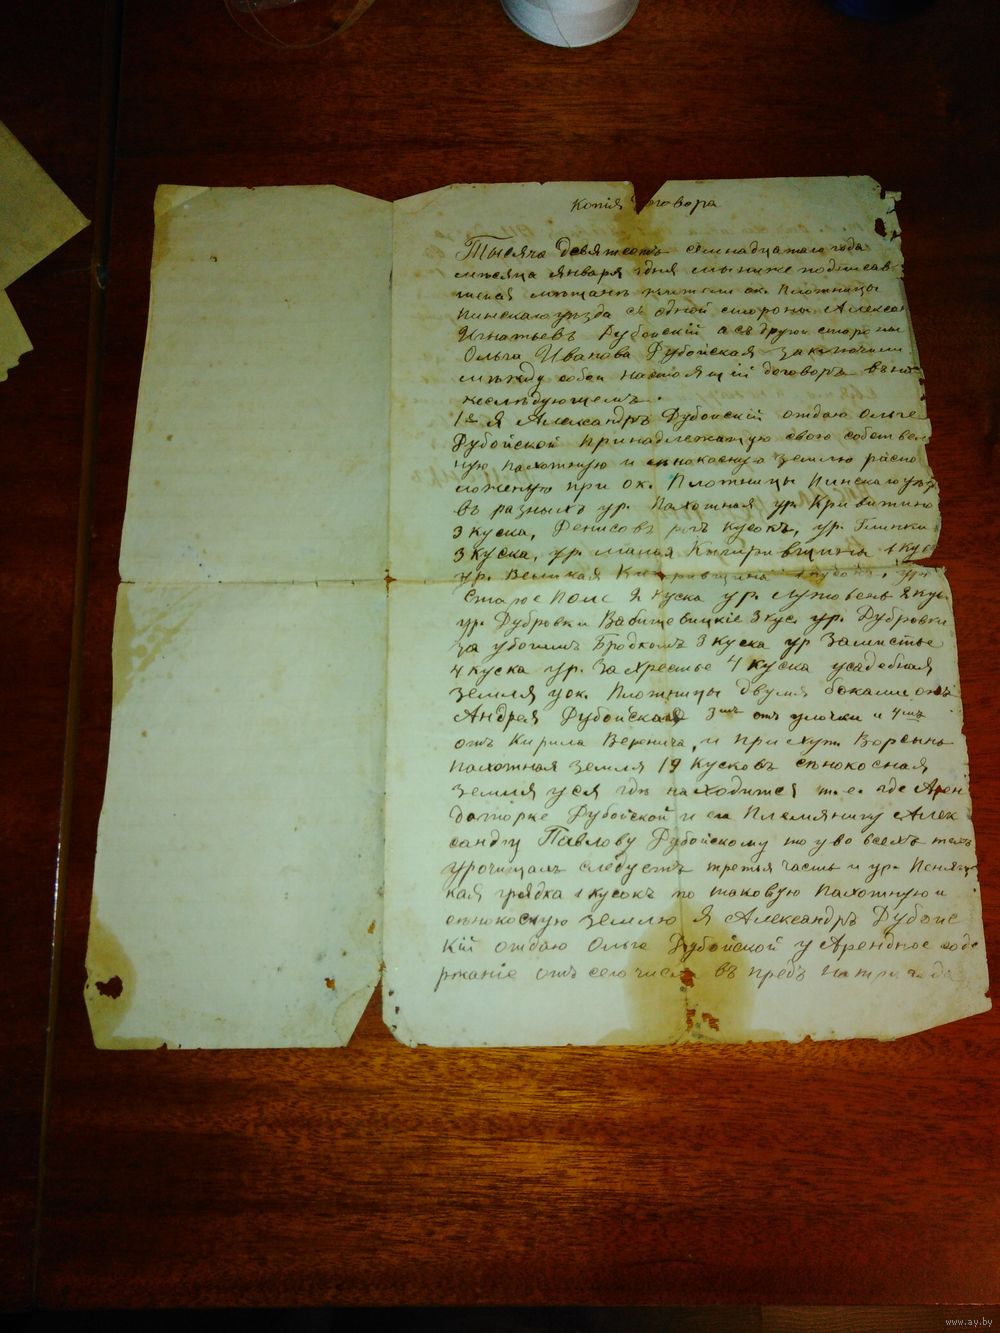 Копія договора
Тысяча девятсотъ семнадцатаго года
мѣсяца января 1 дня мы ниже подписав
шеися мѣщане жители ок. Плотницы
Пинскаго уѣзда съ одной стороны Алексан
Игнатьевъ Дубойскій а съ другой стороны
Ольга Иванова Дубойская заключили
между собой настоящій договоръ въ ни
жеслѣдующемъ.
1е Я Александръ Дубойскій отдаю Ольге
Дубойской принадлежащую свою собствен
ную пахотную и сѣнокосную землю распо
ложеную при ок. Плотницы Пинскаго уѣз
въ разныхъ ур. Пахотная ур. Кривичино
3 куска, Денисовъ рогъ кусокъ, ур. Глинки
3 куска, ур. малая 1 кус
ур. Великая 1 кусокъ, ур.
Старое Поле 2 куска ур. Лужовень 2 кус
ур. Дубровки Вабищевицкіе 3 кус. ур. Дубровки
за убогимъ Бродкомъ 3 куска ур Замистье
4 куска ур. За хрестье 4 куска усадебная
земля у ок. Плотницы двумя боками отъ
Андрея Дубойская 3мъ отъ улочки и 4мъ
отъ Кирила Веренича, и при хут. Ворсынь
Пахотная земля 19 кусковъ сѣнокосная
земля уся гдѣ находится т. е. где Арен
даторке Дубойской и ея Племянику Алек
сандру Павлову Дубойскому то у во всехъ техъ
урочищахъ следуетъ третья часть и ур.
кая грядка 1 кусокъ то таковую пахотную и
сѣнокосную землю Я Александръ Дубойс
кій отдаю Ольге Дубойской у Арендное соде
ржаніе отъ сего числа въ предъ на три года
www.ay.by